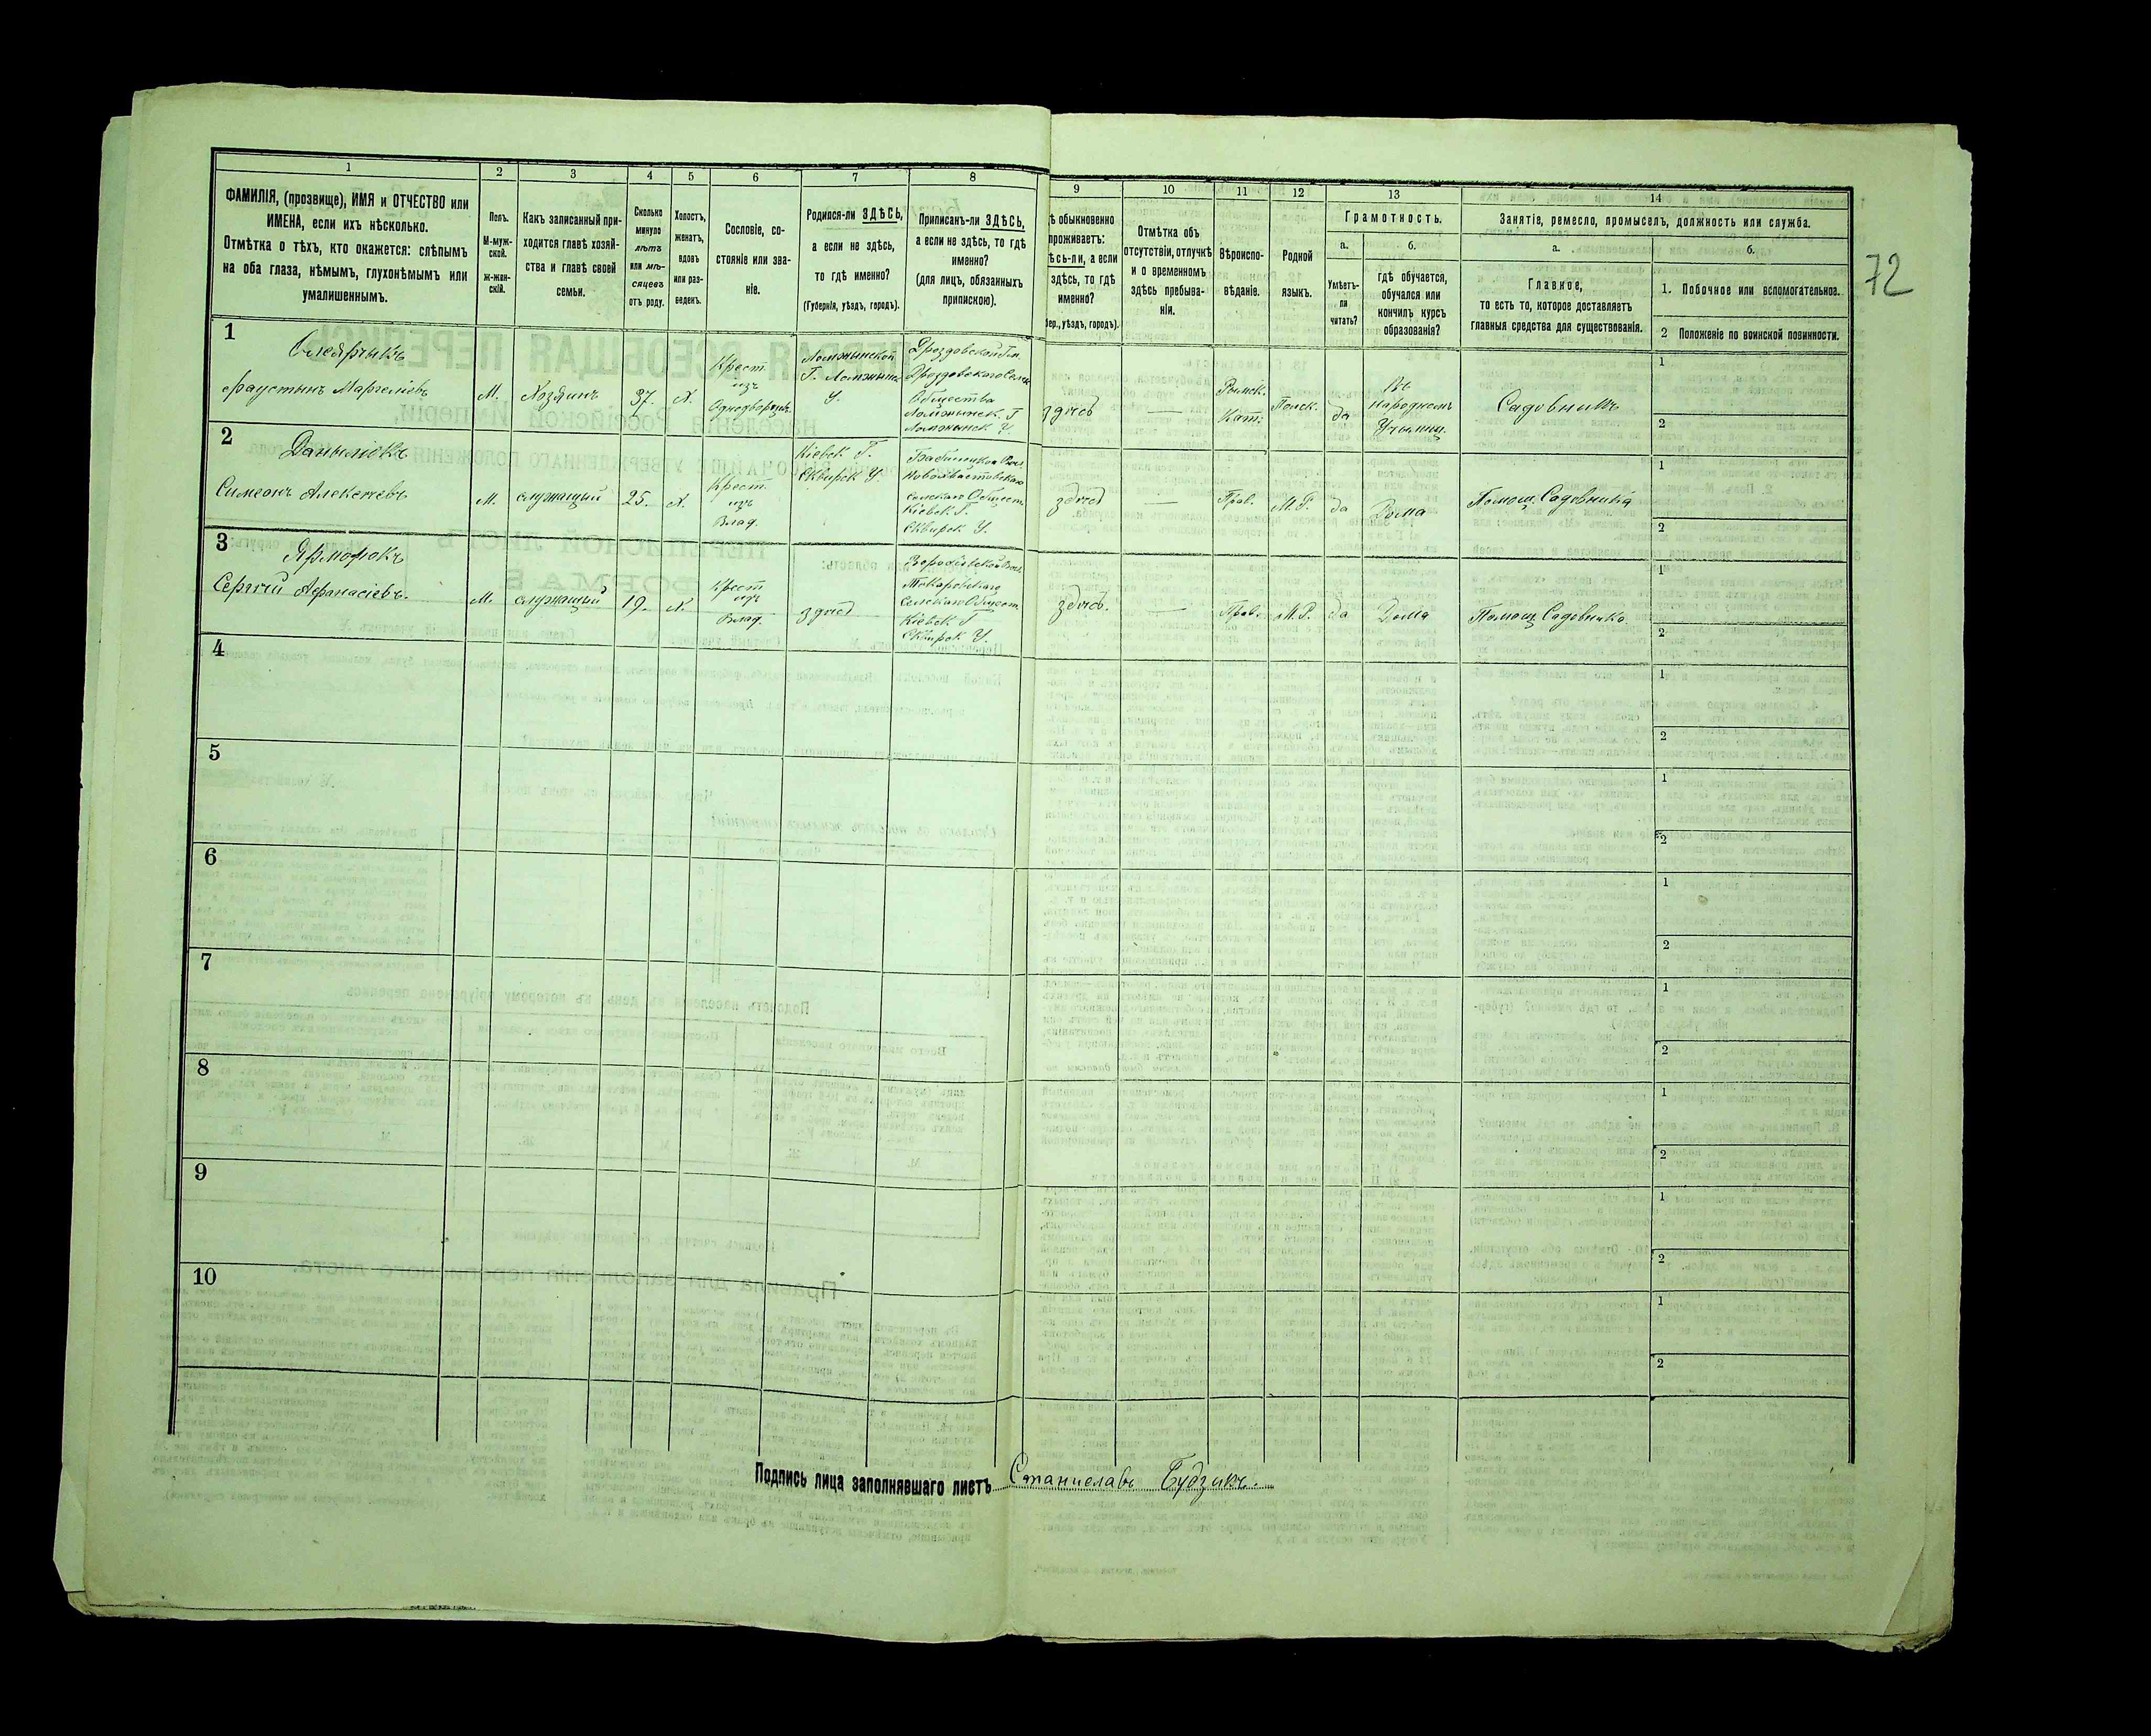 72
1 2 3 4 5 6 7 8 9 10 11 12 13 14
ФАМИЛІЯ, (прозвище), ИМЯ и ОТЧЕСТВО или
ИМЕНА, если ихъ нѣсколько.
Отмѣтка о тѣхъ, кто окажется: слѣпымъ
на оба глаза, нѣмымъ, глухонѣмымъ или
умалишеннымъ.
Полъ.
М-муж-
ской.
ж-жен-
скій.
Какъ записанный при-
ходится главѣ хозяй-
ства и главѣ своей
семьи.
Сколько
минуло
лѣтъ
или мѣ-
сяцевъ
отъ роду.
Холостъ,
женатъ,
вдовъ
или раз-
веденъ.
Сословіе, со-
стояніе или зва-
ніе.
Родился-ли ЗДѢСЬ,
а если не здѣсь,
то гдѣ именно?
(Губернія, уѣздъ, городъ).
Приписанъ-ли ЗДѢСЬ,
а если не здѣсь, то гдѣ
именно?
(для лицъ, обязанныхъ
припискою).
ѣ обыкновенно
проживаетъ:
ѣсь-ли, а если
здѣсь, то гдѣ
именно?
бер., уѣздъ, городъ).
Отмѣтка объ
отсутствіи, отлучкѣ
и о временномъ
здѣсь пребыва-
ніи.
Вѣроиспо-
вѣданіе.
Родной
языкъ.
Грамотность.
а.
Умѣетъ-
ли
читать?
б.
гдѣ обучается,
обучался или
кончилъ курсъ
образованія?
Занятіе, ремесло, промыселъ, должность или служба.
а.
Главное,
то есть то, которое доставляетъ
главныя средства для существованія.
б.
1. Побочное или вспомогательное.
2 Положеніе по воинской повинности.
1
Олеярчыкъ
Фаустынъ Марцеліевъ
М.
Хозяинъ
37.
Х.
Крест.
изъ
Однодворцевъ
Ломжынской
Г. Ломжынск
У.
Дроздовской Гм.
Дроздовского Сельск
Общества
Ломжынск. Г
Ломжынск У.
здѣсь
—
Рымск.
Кат.
Польск.
да
Въ
народномъ
Училищ.
Садовникъ
1
2
2
Данылюкъ
Симеонъ Алексѣевъ
М.
служащый
25.
Х.
Крест.
изъ
Влад.
Кіевск Г.
Сквырск У.
Сельского Общест.
Кіевск Г.
Сквырск У.
здѣсь
—
Прав.
М.Р.
да
Дома
Помощ. Садовника
1
2
3
Ярмолюкъ
Сергѣй Афанасіевъ.
М.
служащый
19.
Х.
Крест
изъ
Влад.
здѣсь
Токаровского
Сельского Общест.
Кіевск Г
Сквырск У.
здѣсь.
—
Прав.
М.Р.
да
Дома
Помощ. Садовника
1
2
4
1
2
5
1
2
6
1
2
7
1
2
8
1
2
9
1
2
10
1
2
Подпись лица заполнявшаго листъ Станиславъ Будзикъ.